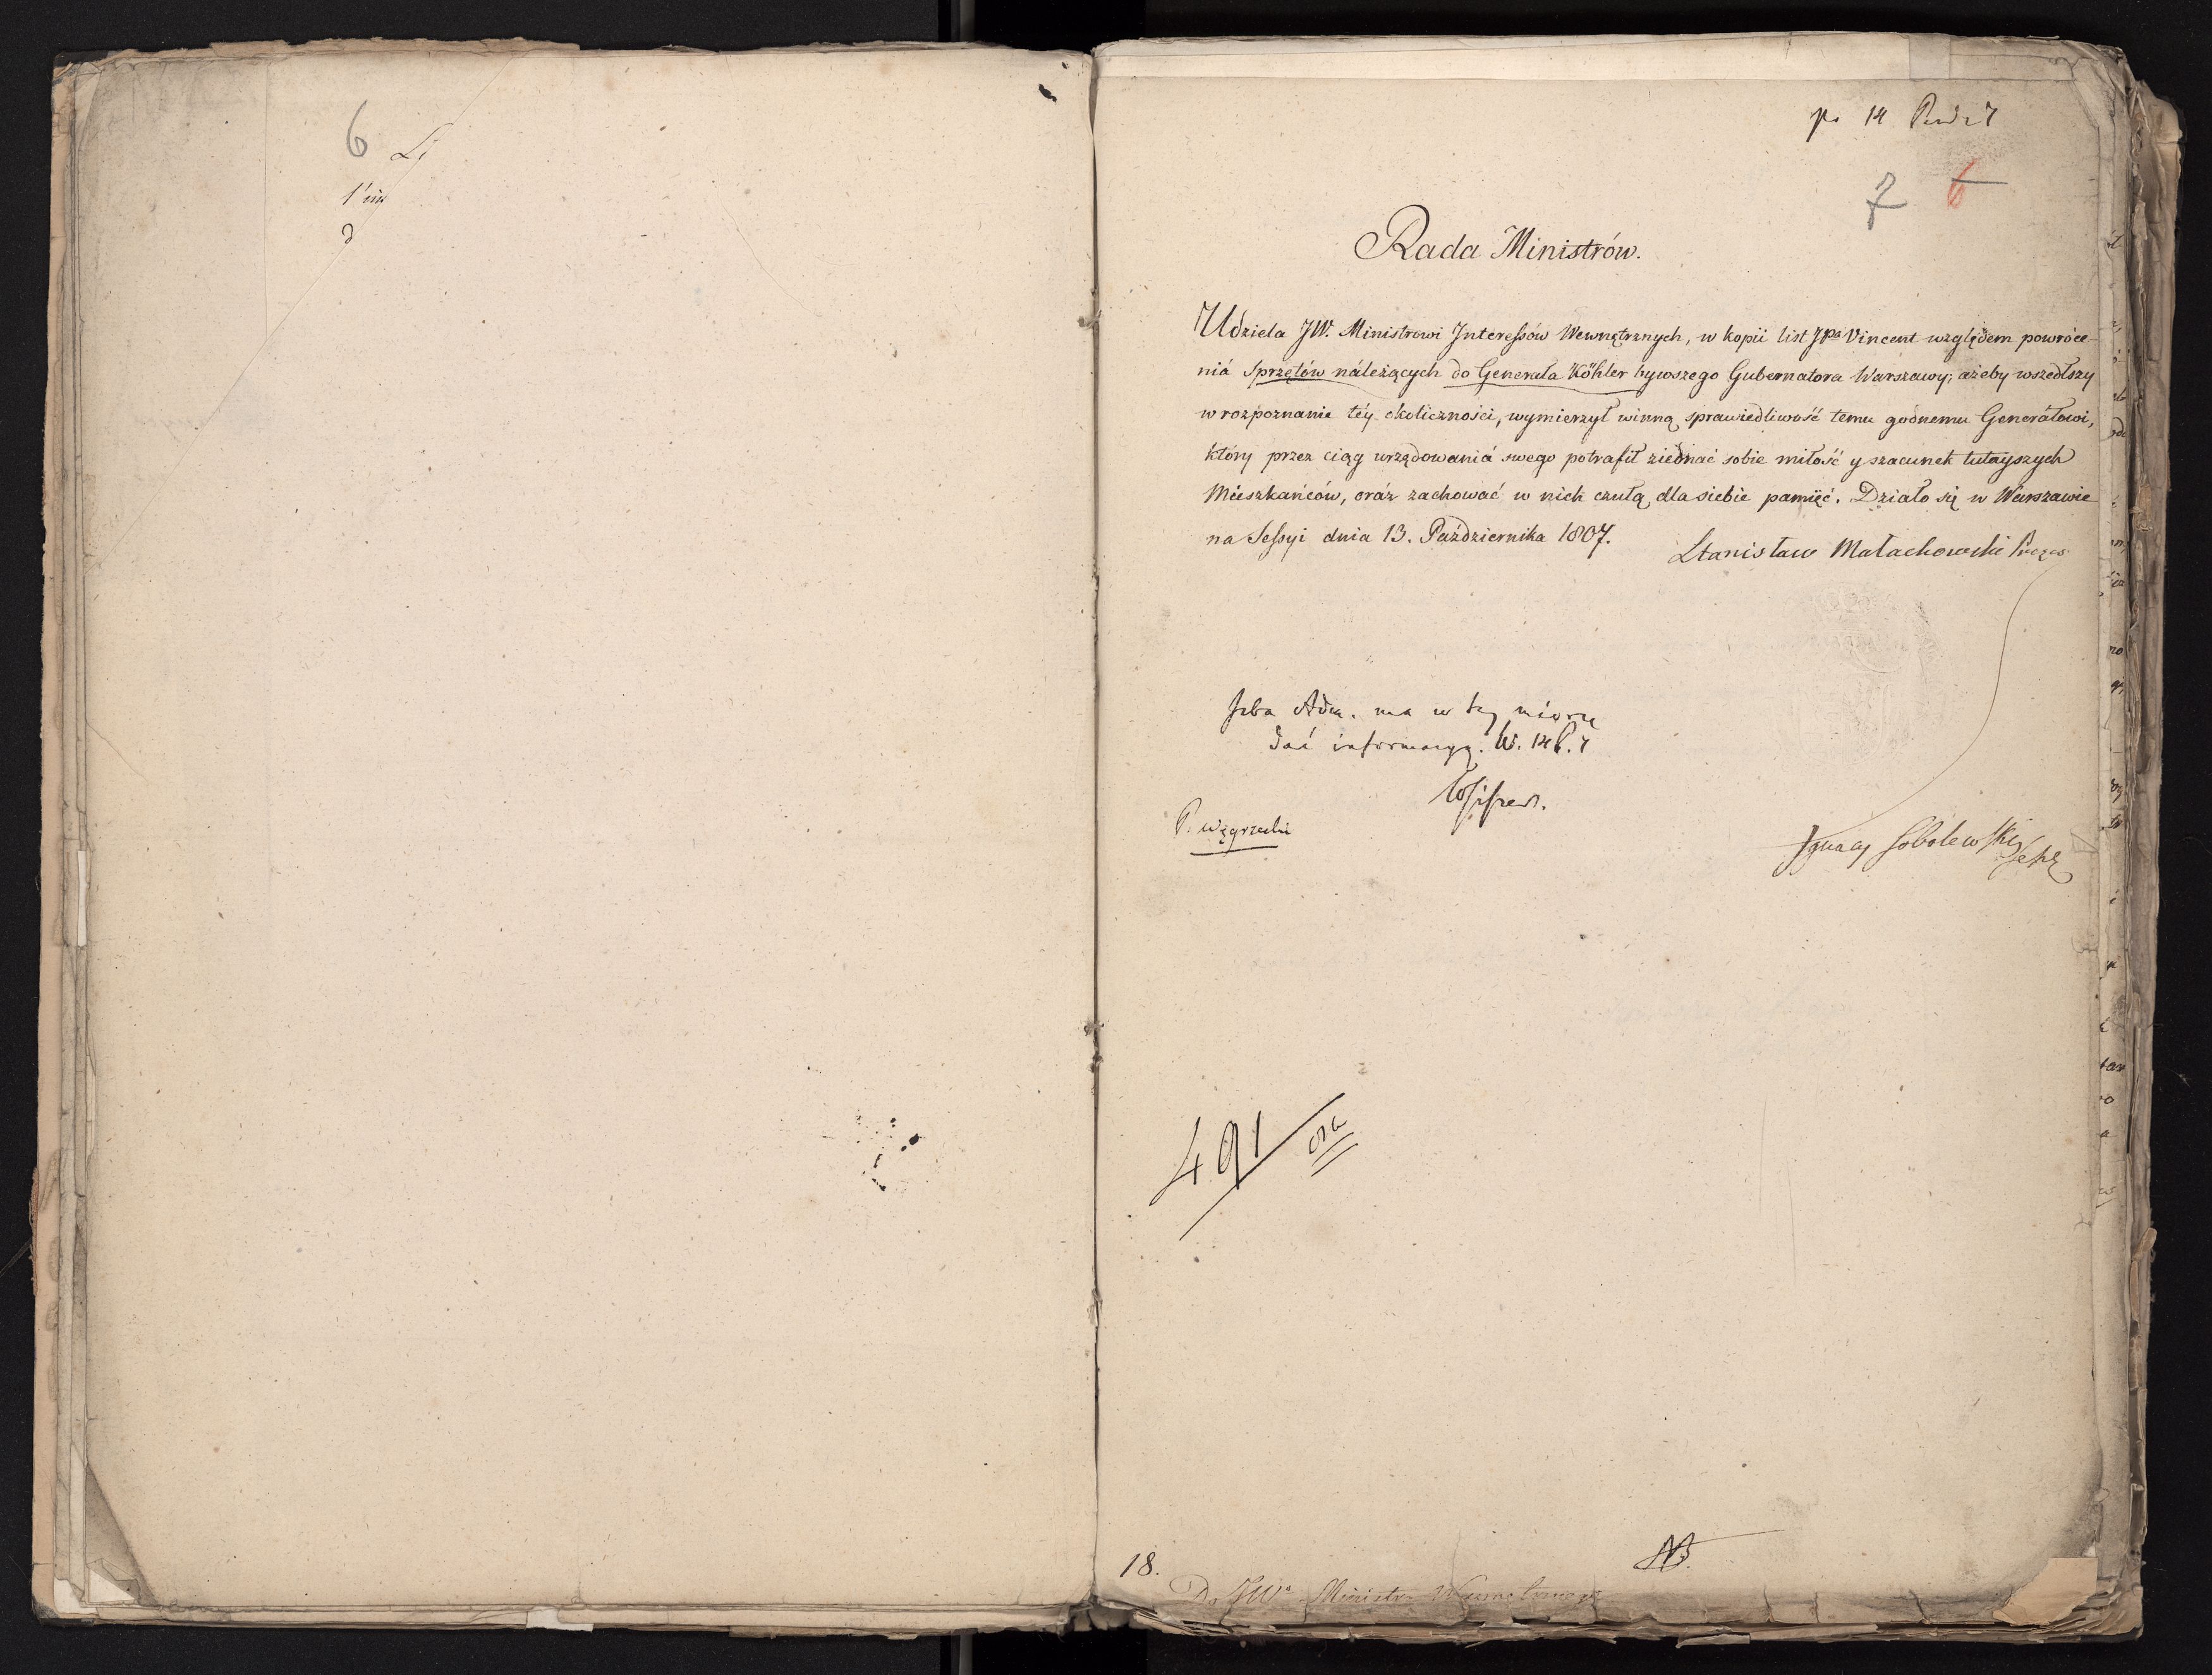 6
po 14
7 6
Rada Ministrów.
Udziela JW. Ministrowi Interessów Wewnętrznych, w kopii list JPa Vincent względem powróce-
niá Sprzętów náleżących do Generała Köhler bywszego Gubernatora Warszawy; ażeby wszedłszy
w rozpoznanie téy okoliczności, wymierzył winną sprawiedliwość temu godnemu Generáłowi,
który przez ciąg urzędowaniá swego potrafił ziednać sobie miłość y szacunek tutayszych
Mieszkańców, oráz zachować w nich czułą dla siebie pamięć. Działo się w Warszawie
na Sessyi dnia 13. Października 1807.
Stanisław Małachowski Prezes
Izba Adm. ma w tey mierze
dać informacyą. W. 14 P. 7
P. Węgrzecki
Ignacy Sobolewski Sekr
491
18.
Do JWo Ministra Wewnętrznego